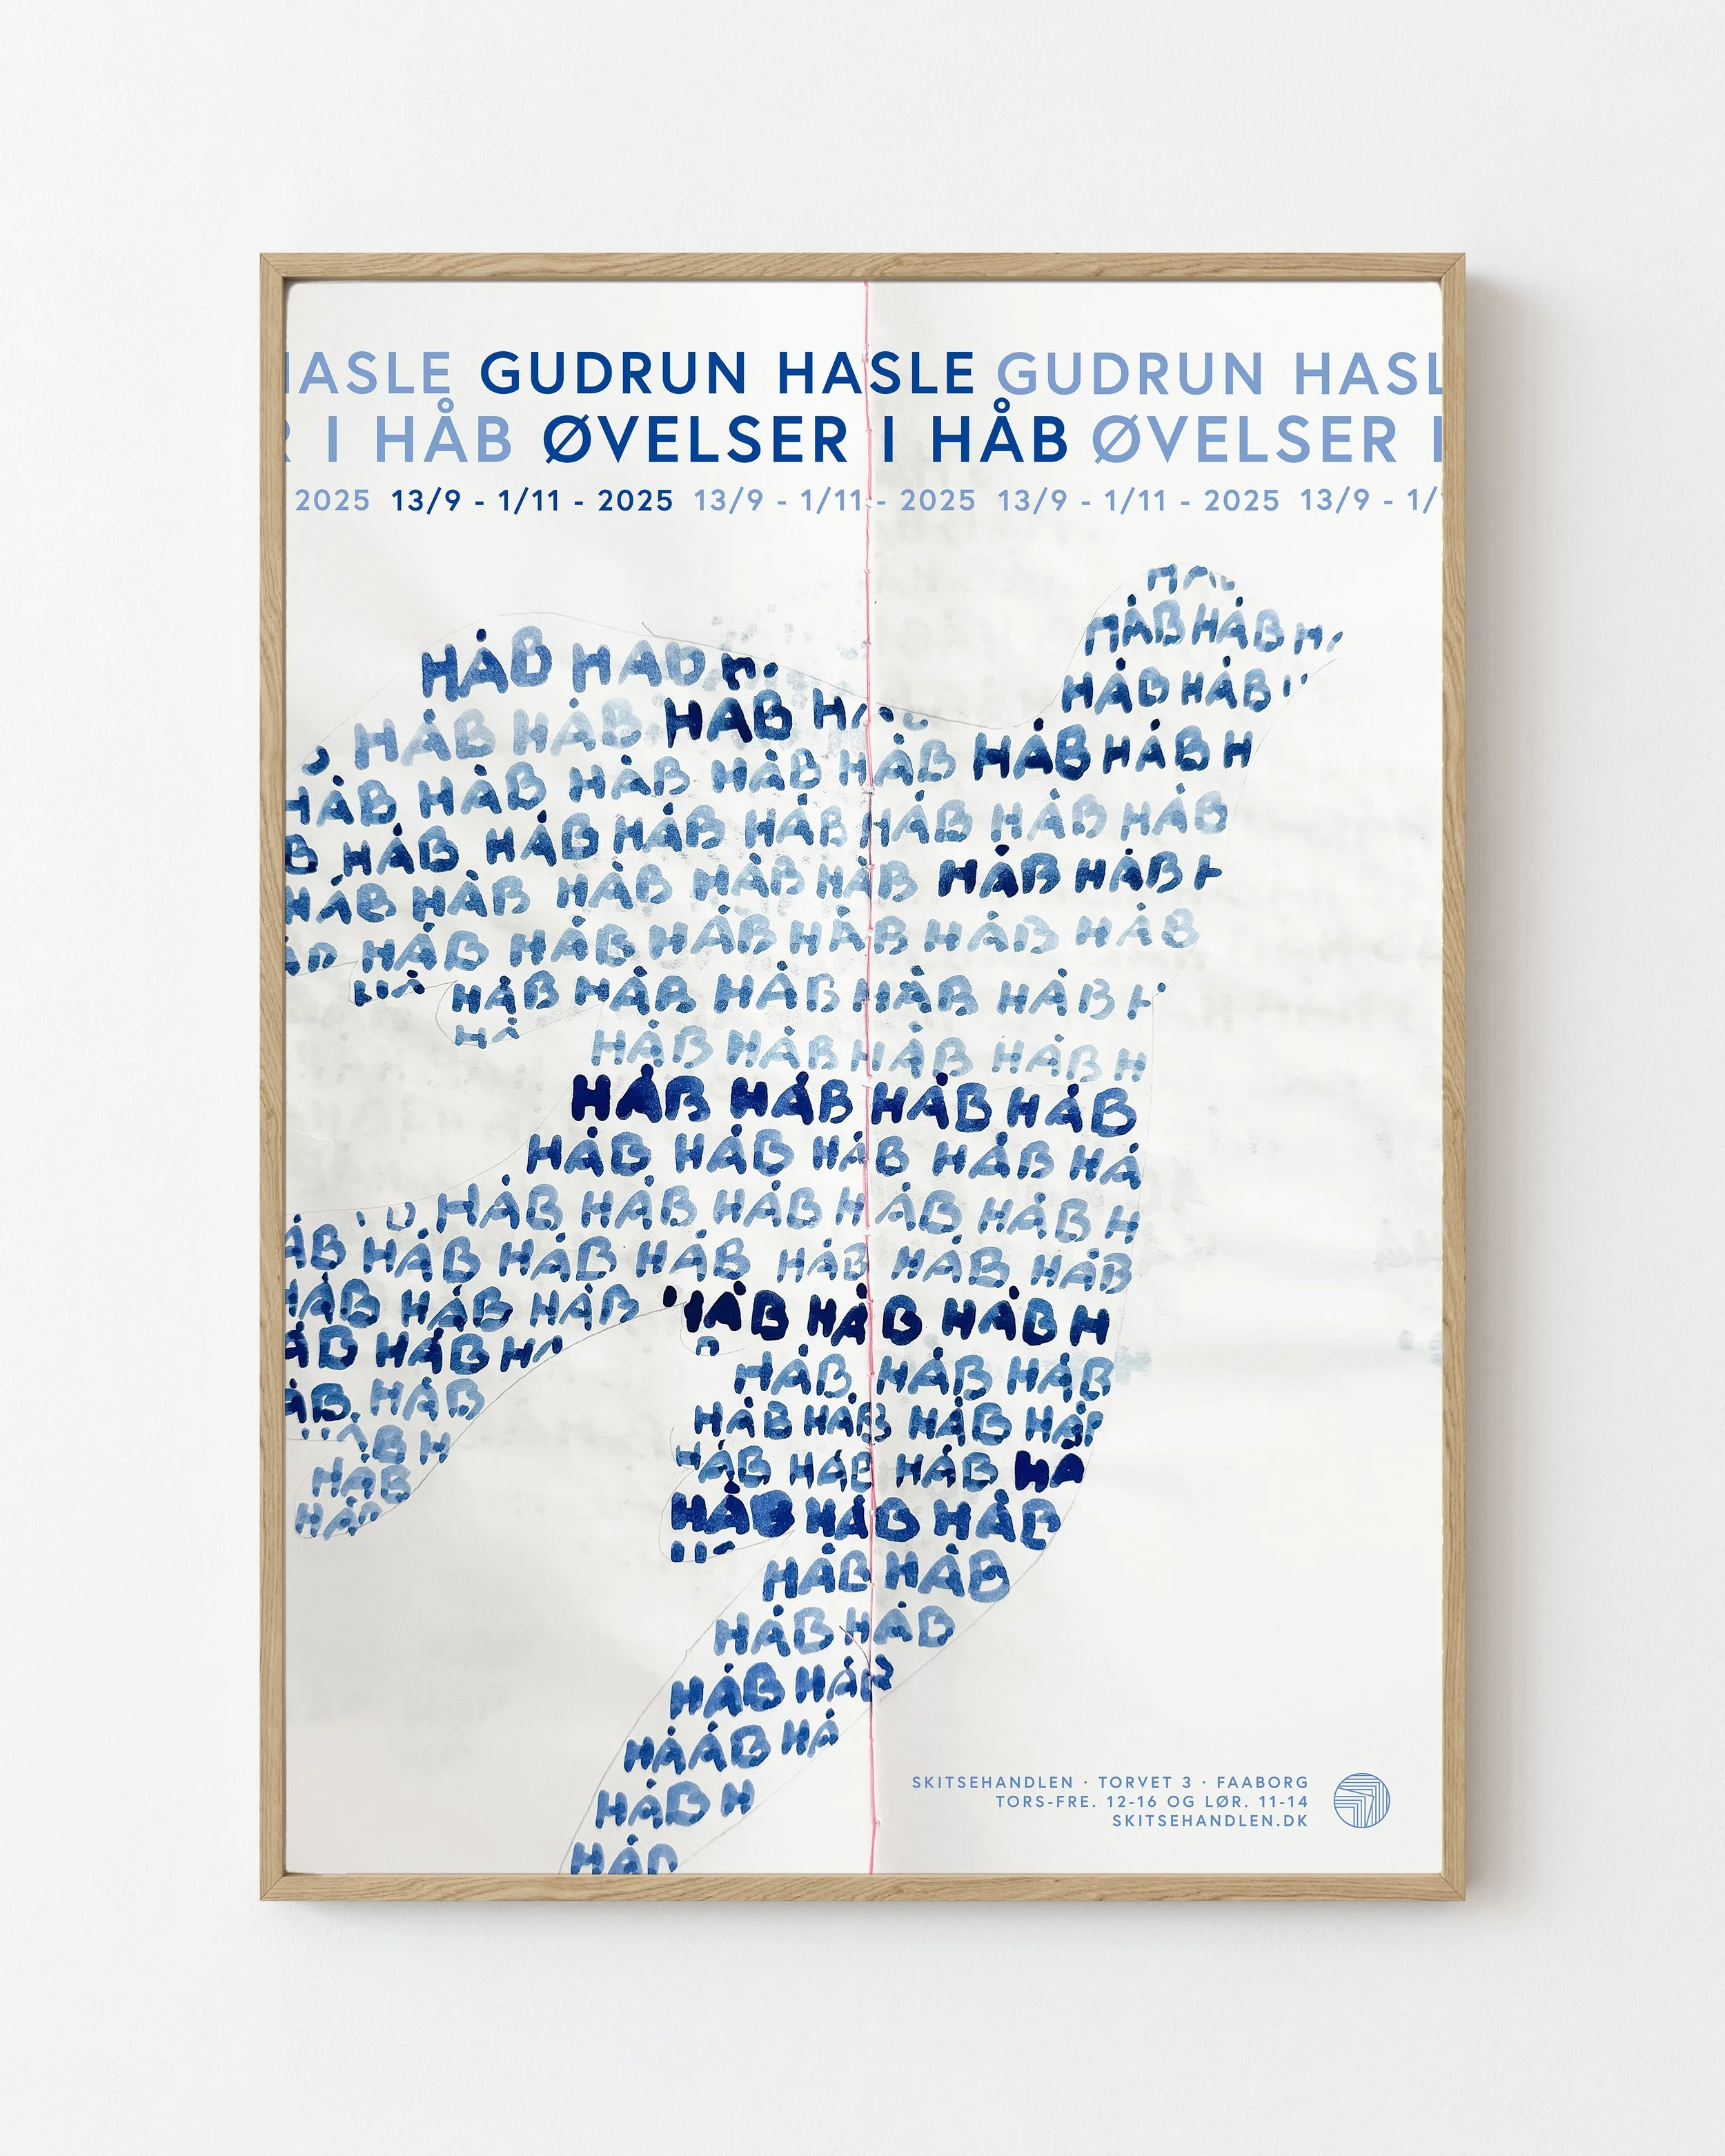 HASLE GUDRUN HASLE GUDRUN HASL
R I HÅB ØVELSER I HÅB ØVELSER I
2025 13/9 - 1/11 - 2025 13/9 - 1/11 - 2025 13/9 - 1/11 - 2025 13/9 - 1/1
HÅB H
HÅB HÅB
HÅB HÅB
HÅB HÅB HÅB H
HÅB HÅB HÅB HÅB HÅB HÅB HÅB HÅB H
HÅB HÅB HÅB HÅB HÅB HÅB HÅB HÅB
B HÅB HÅB HÅB HÅB HÅB HÅB HÅB
HÅB HÅB HÅB HÅB HÅB HÅB HÅB H
HÅB HÅB HÅB HÅB HÅB HÅB
HÅB HÅB HÅB HÅB HÅB H
HÅ HÅB HÅB HÅB HÅB H
HÅB HÅB HÅB HÅB
HÅB HÅB HÅB HÅB HÅ
HÅB HÅB HÅB HÅB HÅB H
ÅB HÅB HÅB HÅB HÅB HÅB HÅB
HÅB HÅB HÅB HÅB HÅB HÅB H
ÅB HÅB H
HÅB HÅB HÅB
ÅB HÅB
HÅB HÅB HÅB HÅB
ÅB H
HÅB HÅB HÅB HÅ
HÅB
HÅB HÅB HÅB
HÅB
HÅB HÅB
HÅB HÅB
HÅB HÅB
HÅÅB HÅ
HÅB H
HÅB
SKITSEHANDLEN · TORVET 3 · FAABORG
TORS-FRE. 12-16 OG LØR. 11-14
SKITSEHANDLEN.DK